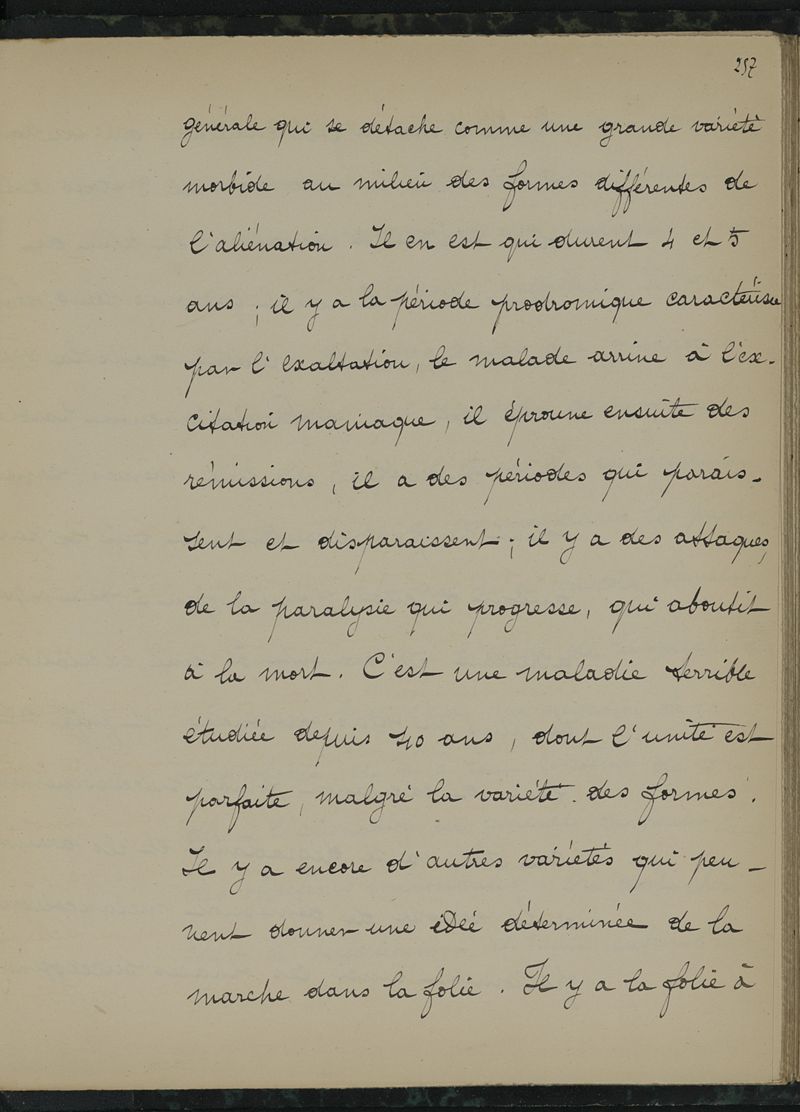 257
générale qui se détache comme une grande variété
morbide au milieu des formes différentes de
l'aliénation. Il en est qui durent 4 et 5
ans ; il y a la période prodromique caractérisée
par l'exaltation, le malade arrive à l'ex-
citation maniaque, il éprouve ensuite des
rémissions, il a des périodes qui parais-
sent et disparaissent ; il y a des attaques,
de la paralysie qui progresse, qui aboutit
à la mort. C'est une maladie terrible
étudiée depuis 40 ans, dont l'unité est
parfaite, malgré la variété des formes.
Il y a encore d'autres variétés qui peu-
vent donner une idée déterminée de la
marche dans la folie. Il y a la folie à